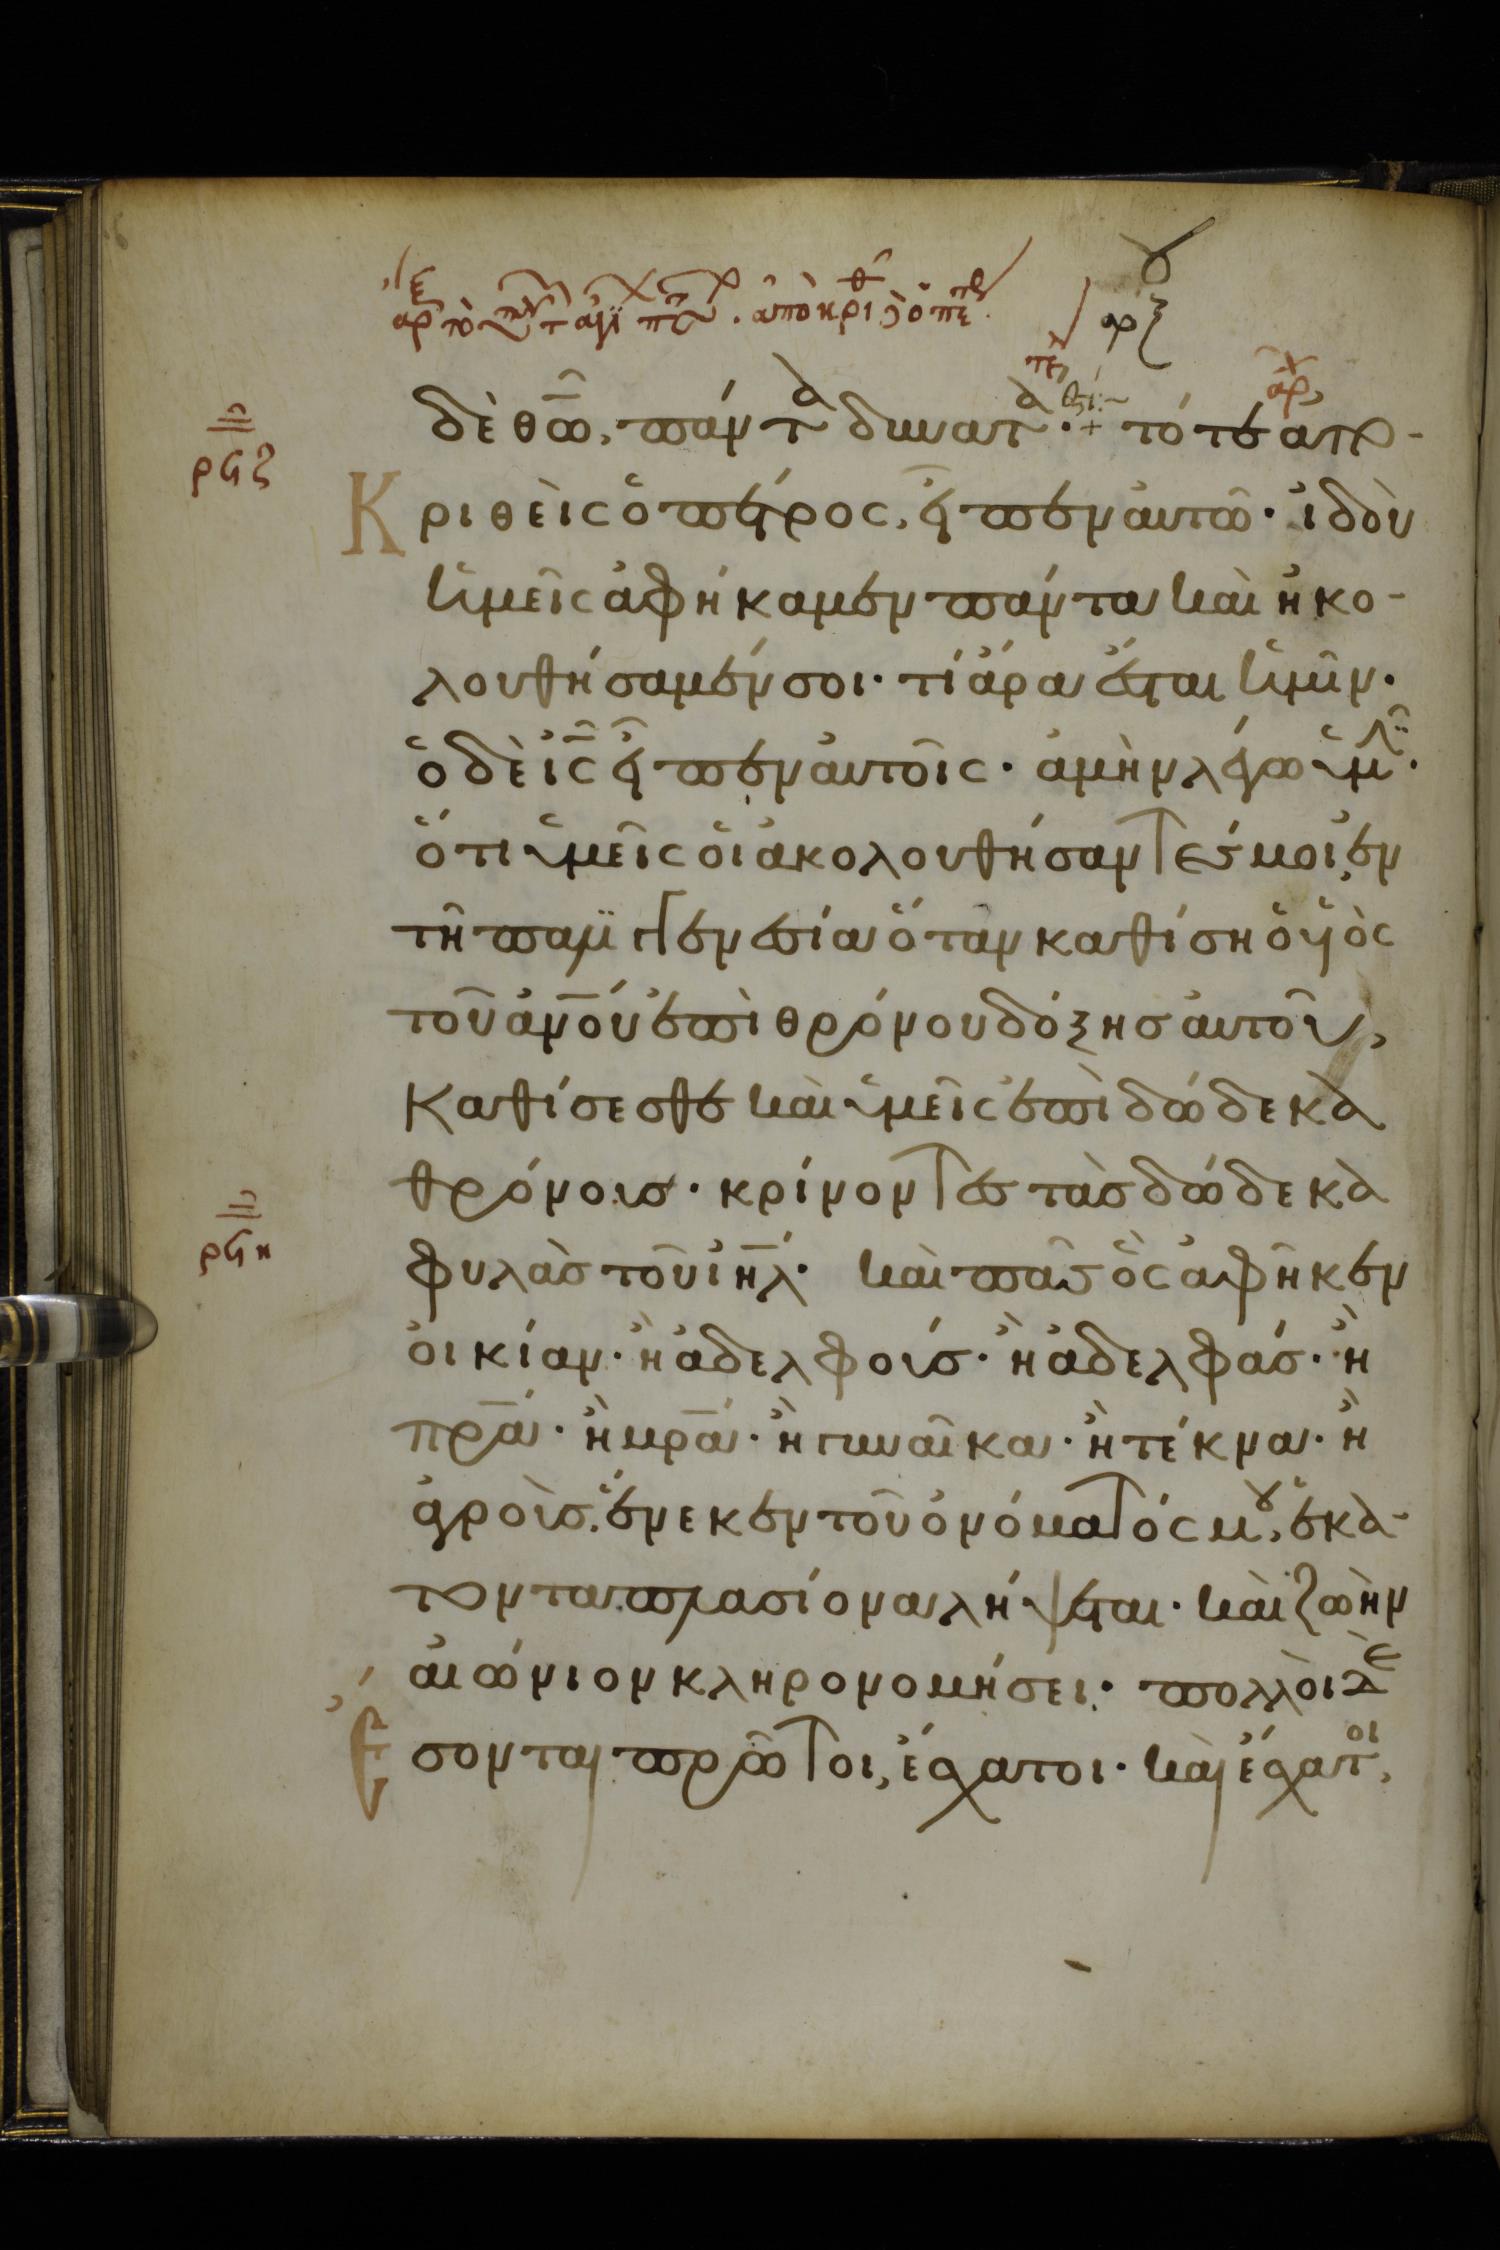 δὲ θ̅ω̅, πάντα δυνατά· τότε απο-
κριθεὶς ὁ πέτρος, εἶπεν αὐτῶ· ἰδοὺ
ἡμεῖς ἀφήκαμεν πάντα καὶ ἠκο-
λουθήσαμέν σοι· τί ἄρα ἔσται ἡμῖν·
ὁ δὲ ι̅ς̅ εἶπεν αὐτοῖς· ἀμὴν λέγω ὑμῖν·
ὅτι ὑμεῖς οἱ ἀκολουθήσαντές μοι, ἐν
τῆ παλιγγενεσία ὅταν καθίση ὁ υἱὸς
τοῦ α̅ν̅ο̅υ̅ ἐπὶ θρόνου δόξης αὐτοῦ,
καθίσεσθε καὶ ὑμεῖς ἐπὶ δώδεκα
θρόνους· κρίνοντες τὰς δώδεκα
φυλὰς τοῦ ι̅η̅λ̅· καὶ πᾶς ὃς ἀφῆκεν
οἰκίαν· ἢ ἀδελφούς· ἢ ἀδελφάς· ἢ
π̅ρ̅α̅· ἢ μ̅ρ̅α̅· ἢ γυναῖκα· ἢ τέκνα· ἢ
ἀγροὺς, ἕνεκεν τοῦ ὀνόματός μου, ἑκα-
τονταπλασίονα λήψεται· καὶ ζωὴν
αἰώνιον κληρονομήσει· πολλοὶ δὲ
ἔσονται πρῶτοι, ἔσχατοι· καὶ ἔσχατοι,
ρϟζ
ρϟη